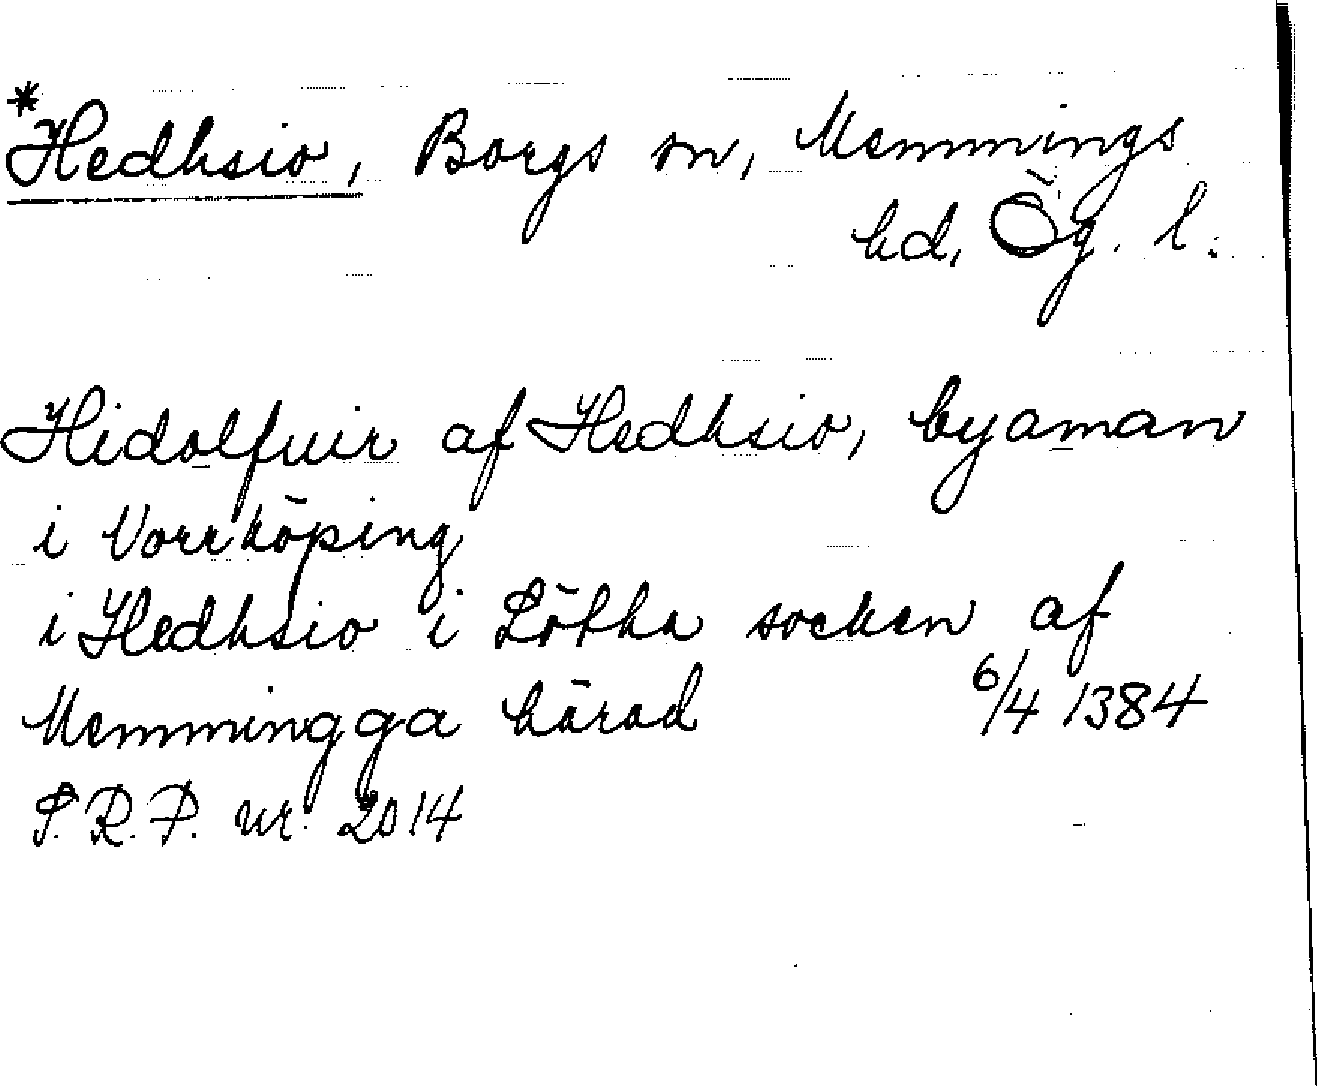 *Hedhsio, Borgs sn, Memmings
hd, Ög. l.
Hidolfuir af Hedhsio, byaman
i Norrköping
i Hedhsio i Lötha socken af
Memmingga härad 6/4 1384
S.R.P. nr 2014